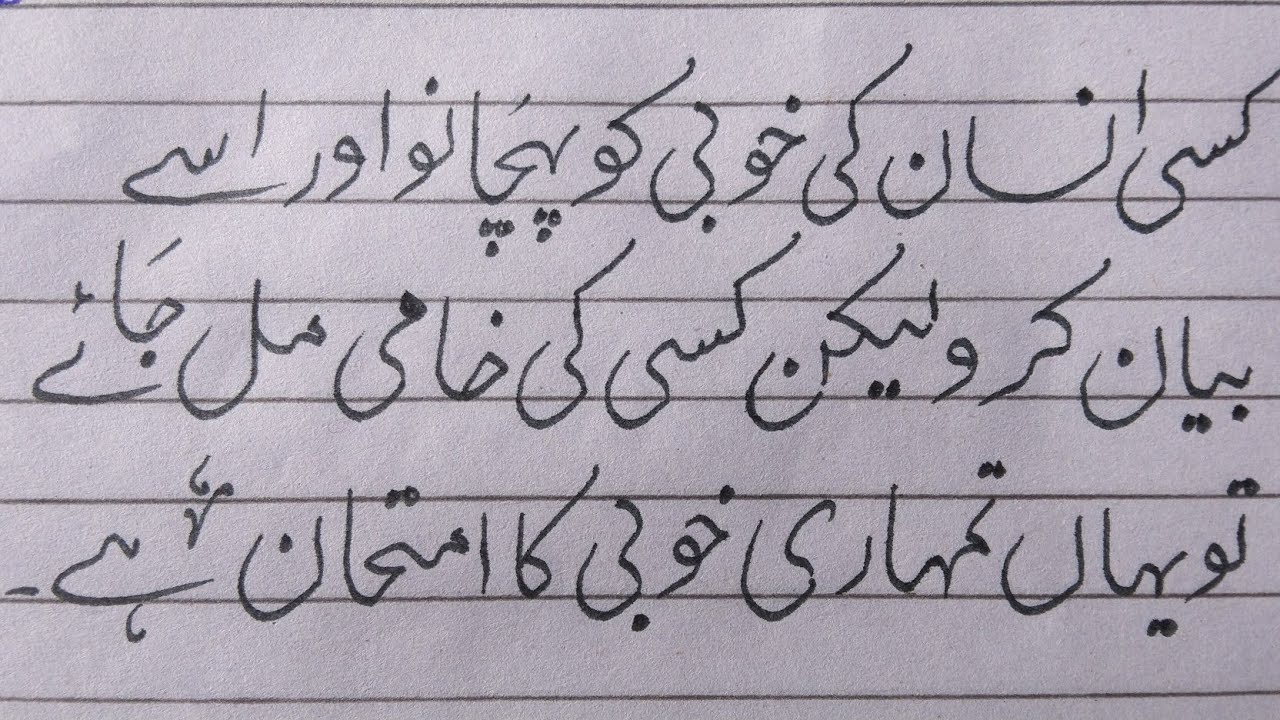 کسی انسان کی خوبی کو پہچَانو اور اسے
بیان کرو لیکن کسی کی خامی مل جَائے
تو یہاں تمہاری خوبی کا امتحان ہے۔